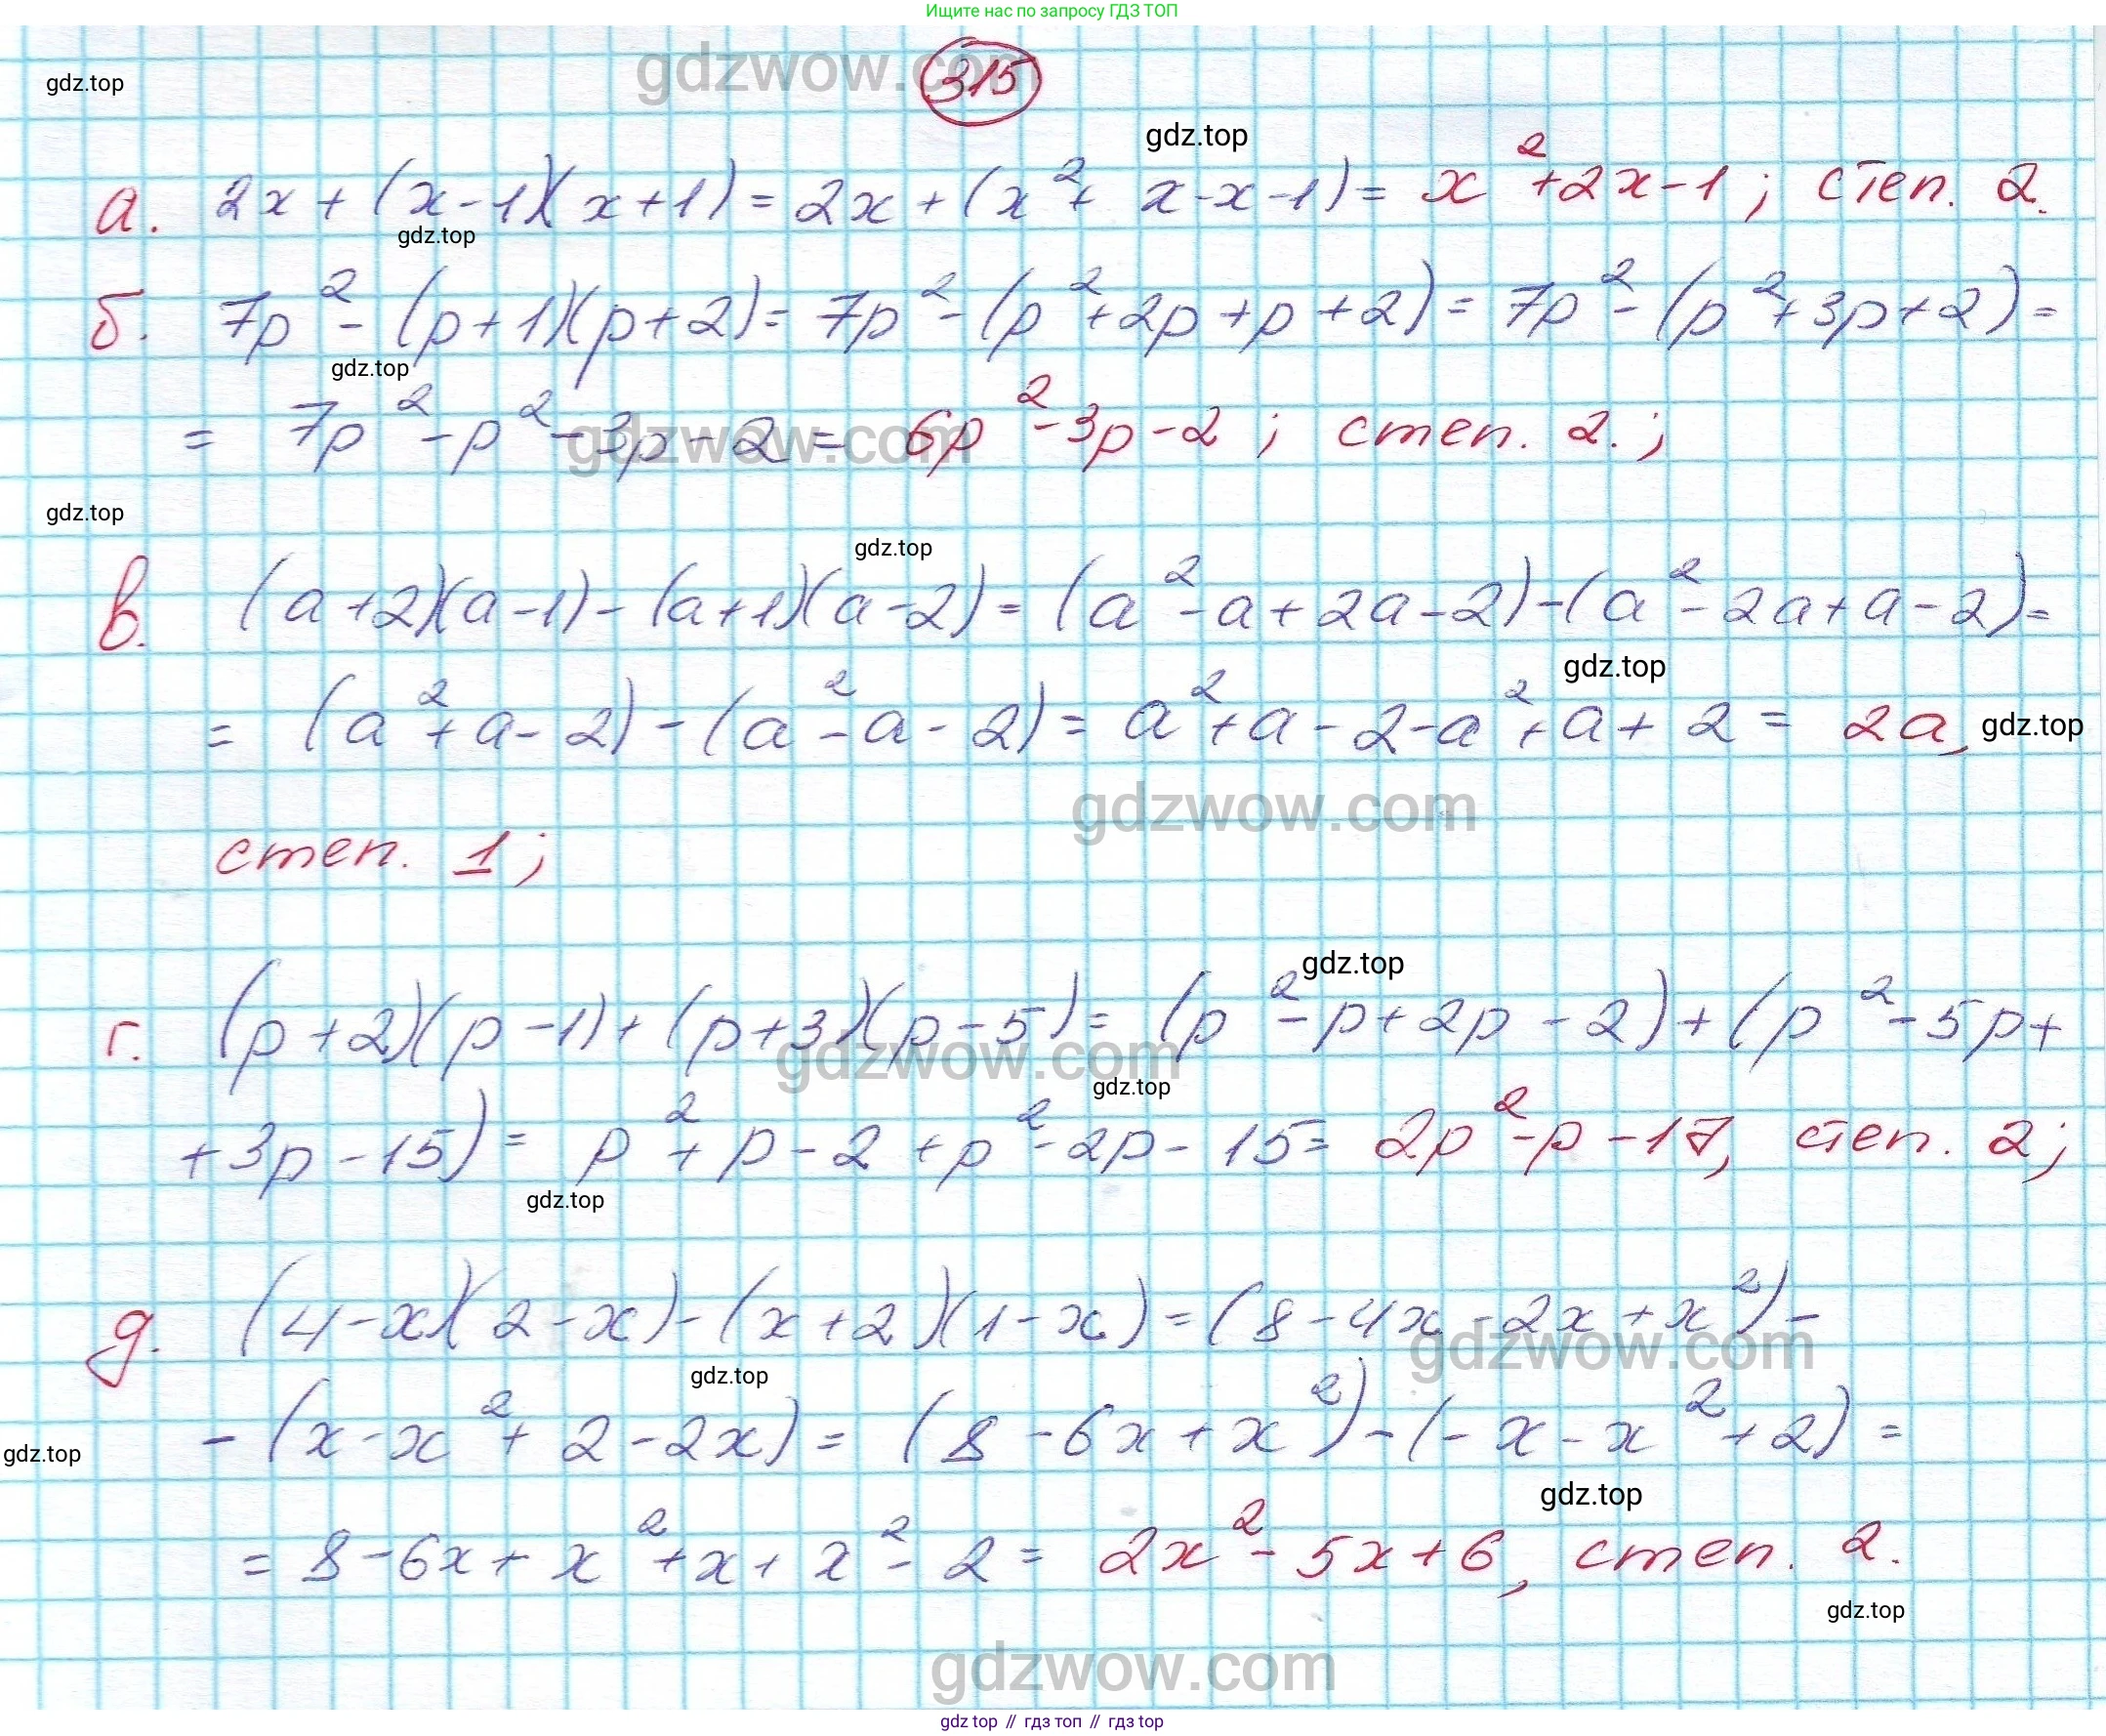 Ищите нас по запросу ГДЗ ТОП
gdzwow.com
315
gdz.top
gdz.top
а. 2x + (x-1)(x+1) = 2x + (x² + x - x - 1) = x² + 2x - 1; степ. 2.
gdz.top
б. 7p² - (p+1)(p+2) = 7p² - (p² + 2p + p + 2) = 7p² - (p² + 3p + 2) =
gdz.top
= 7p² - p² - 3p - 2 = 6p² - 3p - 2; степ. 2.;
gdzwow.com
gdz.top
gdz.top
в. (a+2)(a-1) - (a+1)(a-2) = (a² - a + 2a - 2) - (a² - 2a + a - 2) =
gdz.top
= (a² + a - 2) - (a² - a - 2) = a² + a - 2 - a² + a + 2 = 2a,
gdz.top
gdzwow.com
степ. 1;
gdz.top
г. (p+2)(p-1) + (p+3)(p-5) = (p² - p + 2p - 2) + (p² - 5p +
gdzwow.com
gdz.top
+ 3p - 15) = p² + p - 2 + p² - 2p - 15 = 2p² - p - 17, степ. 2;
gdz.top
д. (4-x)(2-x) - (x+2)(1-x) = (8 - 4x - 2x + x²) -
gdzwow.com
gdz.top
- (x - x² + 2 - 2x) = (8 - 6x + x²) - (- x - x² + 2) =
gdz.top
gdz.top
= 8 - 6x + x² + x + x² - 2 = 2x² - 5x + 6, степ. 2.
gdz.top
gdzwow.com
gdz top // гдз топ // гдз top